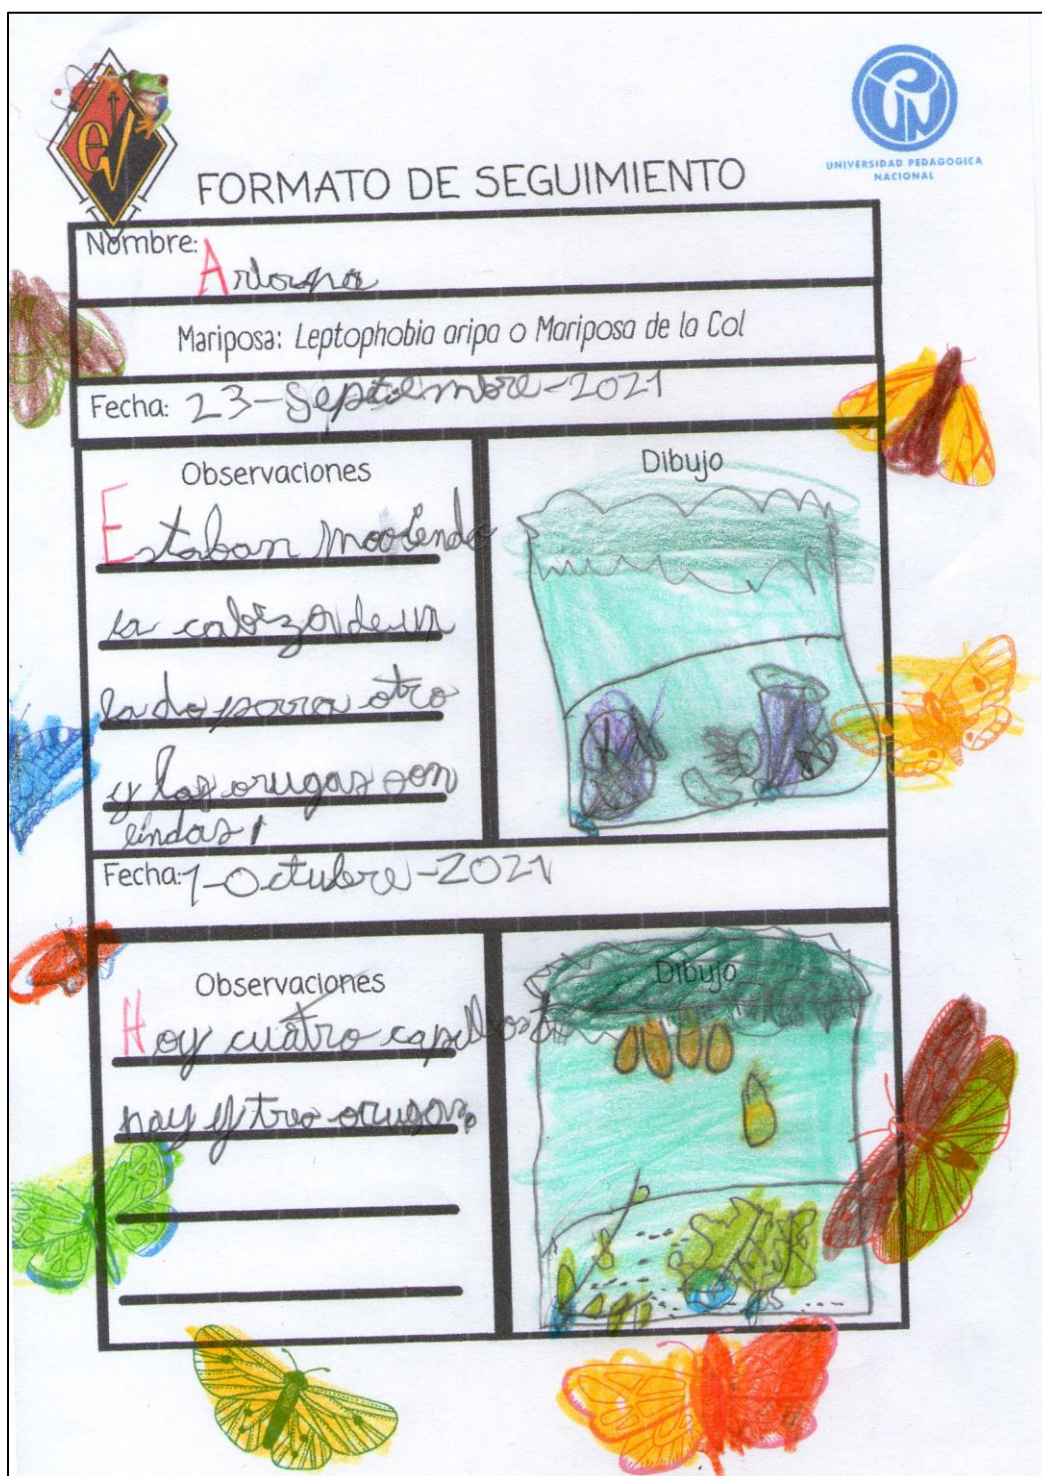 eV
UNIVERSIDAD PEDAGOGICA
NACIONAL
FORMATO DE SEGUIMIENTO
Nombre:
Mariposa: Leptophobia aripa o Mariposa de la Col
Fecha: 23-Septiembre-2021
Observaciones
Dibujo
Estaban moviendo
la cabeza de un
lado para otro
y las orugas son
lindas
Fecha: 1-Octubre-2021
Observaciones
Dibujo
Hoy cuatro capullos
hay y tres orugas.